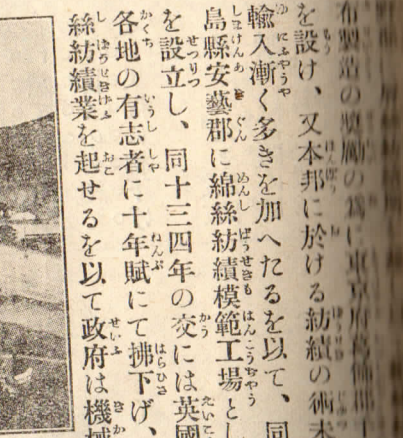 布製造の奬勵の爲に東京府葛飾郡
を設け、又本邦に於ける紡績の術未
輸入漸く多きを加へたるを以て、同
島縣安藝郡に綿絲紡績模範工場とし
を設立し、同十三四年の交には英國
各地の有志者に十年賦にて拂下げ、
絲紡績業を起せるを以て政府は機械